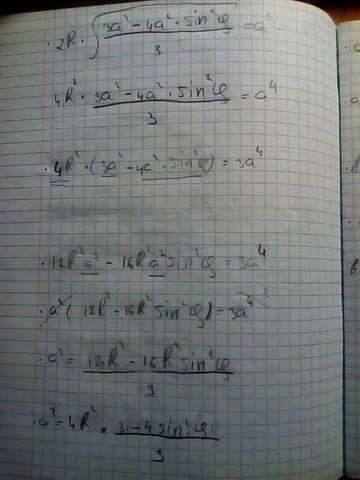 · 2R · √((3a² - 4a² · sin²φ)/3) = a²
4R² · (3a² - 4a² · sin²φ)/3 = a⁴
· 4R² · (3a² - 4a² · sin²φ) = 3a⁴
· 12R²a² - 16R²a² sin²φ = 3a⁴
· a² (12R² - 16R² sin²φ) = 3a⁴ ²
· a² = (12R² - 16R² sin²φ)/3
· a² = 4R² · (3 - 4 sin²φ)/3